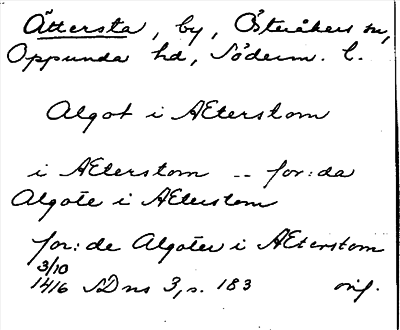 Ättersta, by, Österåkers sn,
Oppunda hd, Söderm. l.
Algot i Æterstom
i Æterstom -- for:da
Algote i Æterstom
for:de Algoter i Æterstom
3/10
1416 SD ns 3, s. 183 orig.